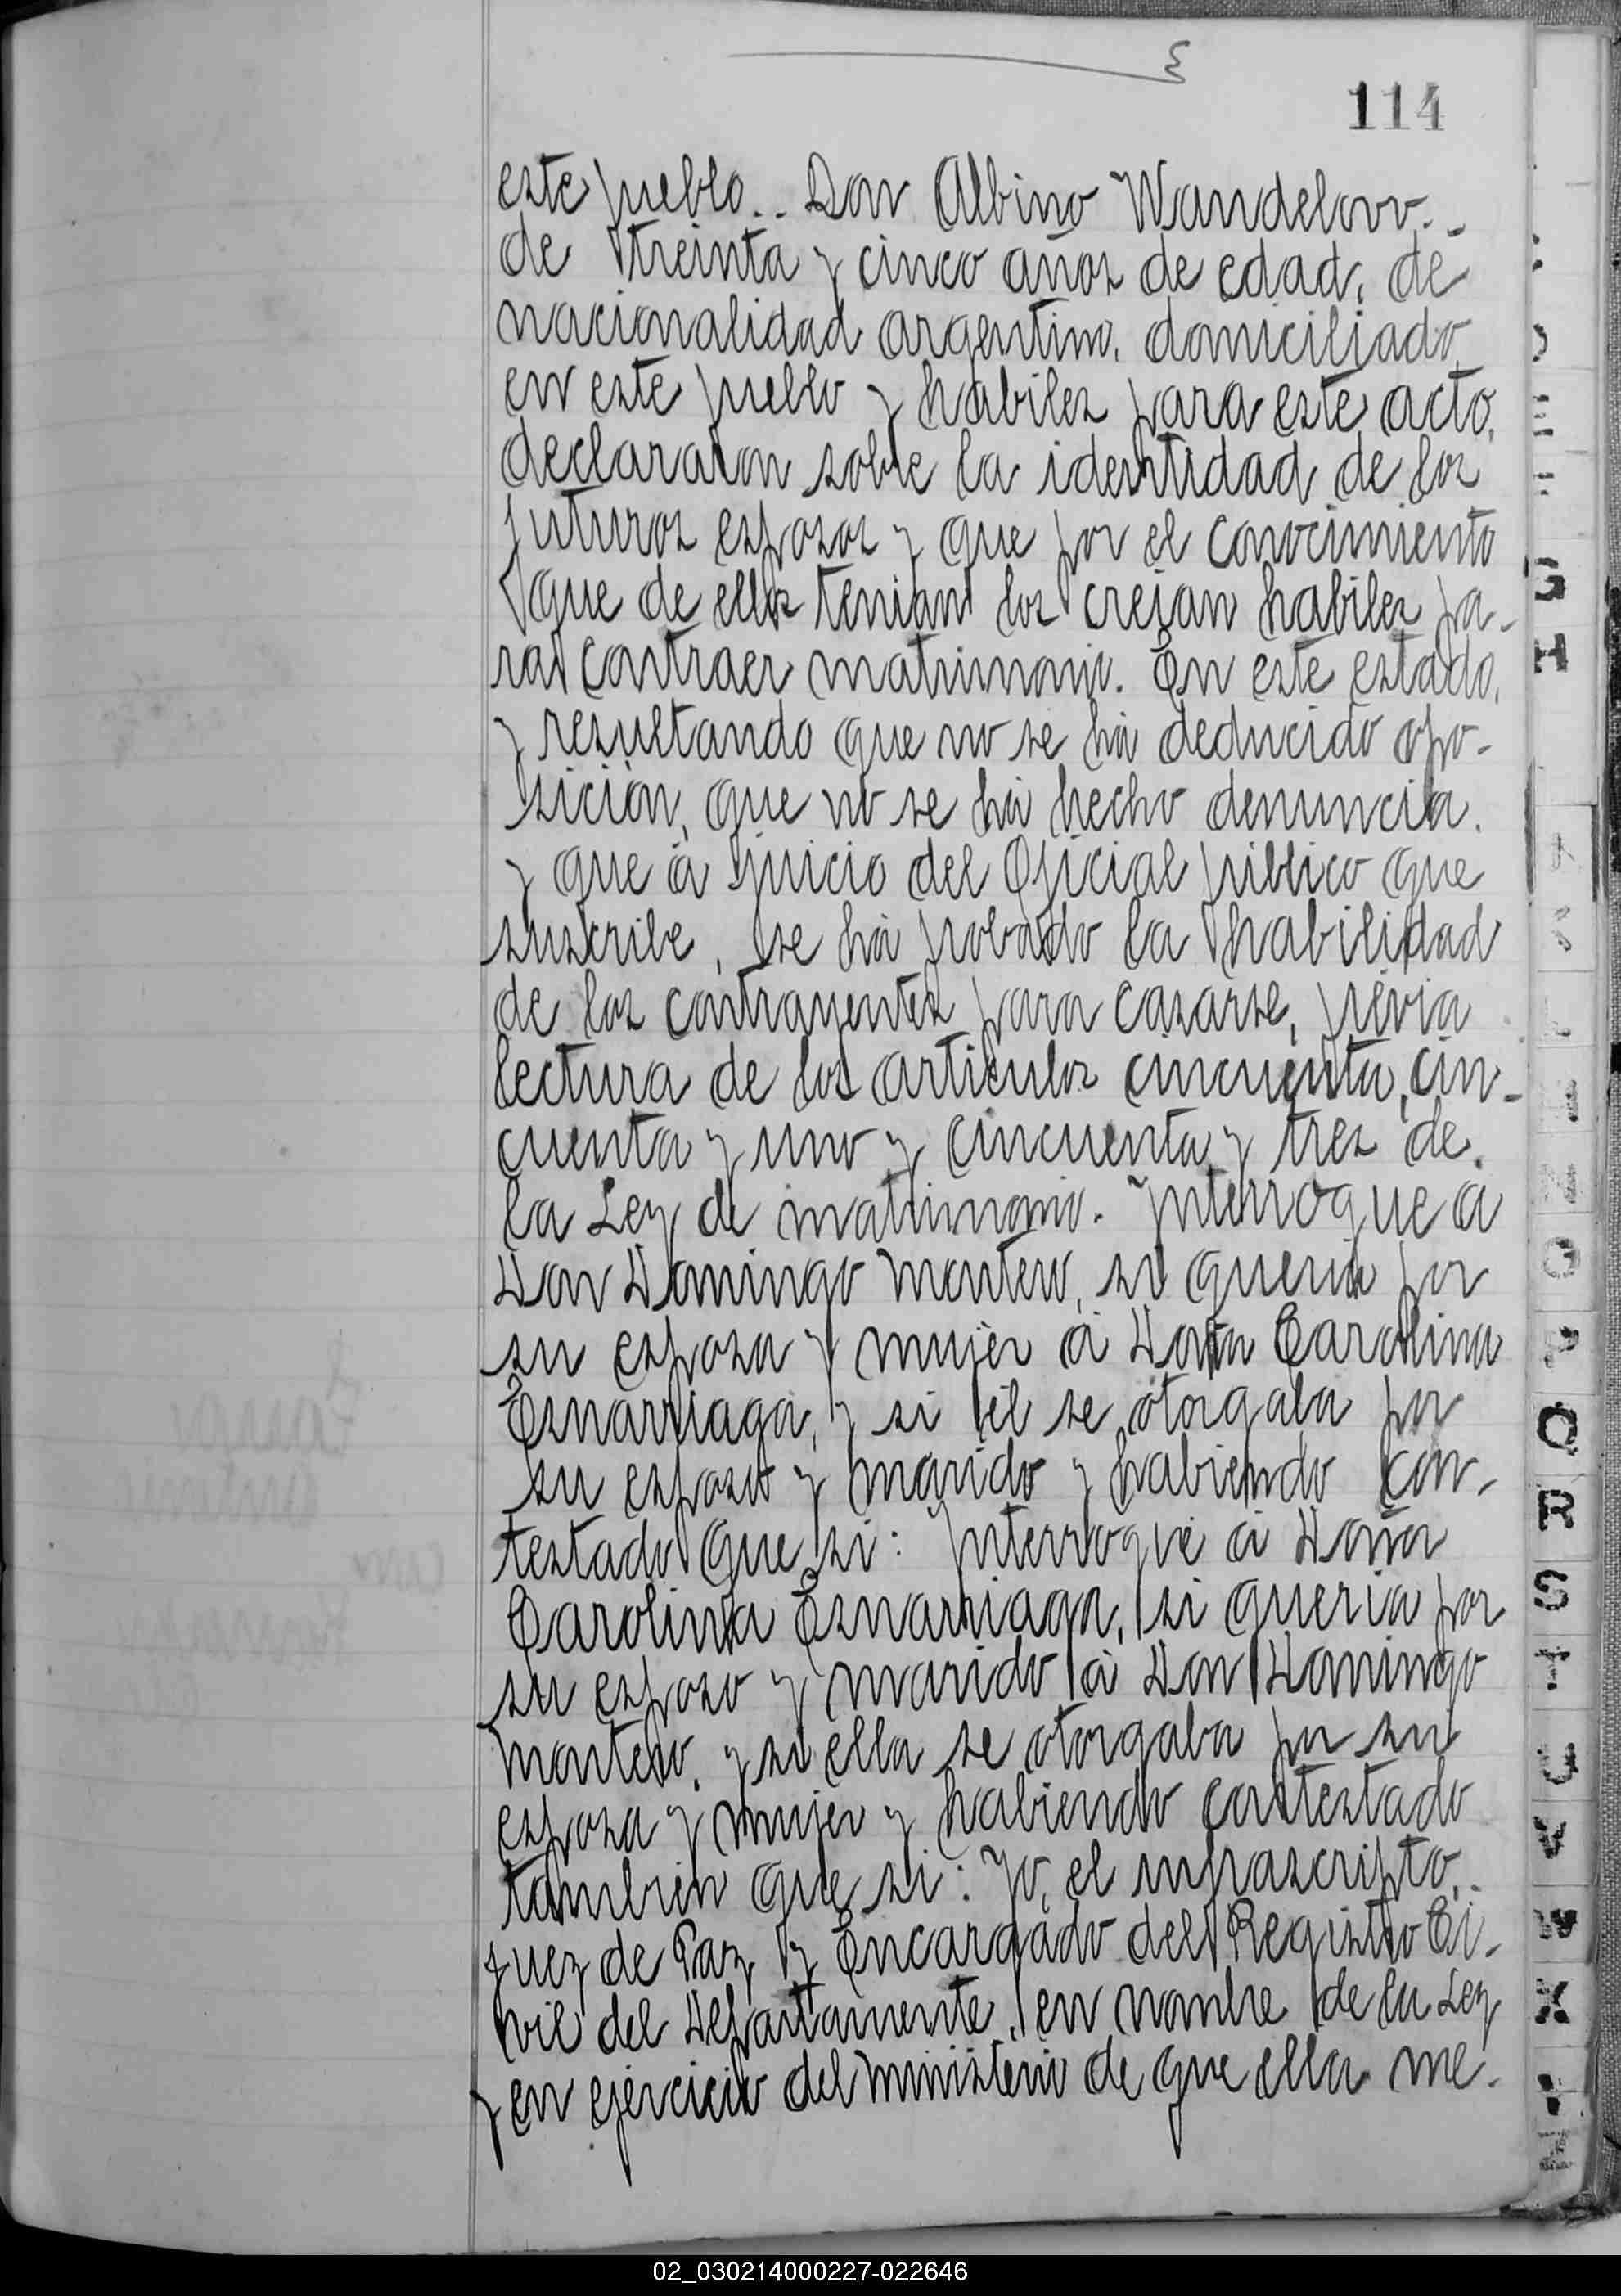 114
este pueblo.. Don Albino Wandelow..
de treinta y cinco años de edad, de
nacionalidad argentino, domiciliado
en este pueblo y habiles para este acto,
declararon sobre la identidad de los
futuros esposos y que por el conocimiento
que de ellos tenian los creian habiles pa-
ra contraer matrimonio. En este estado,
y resultando que no se há deducido opo-
sición, que no se há hecho denuncia,
y que á juicio del Oficial público que
suscribe, se há probado la habilidad
de los contrayentes para casarse, prévia
lectura de los articulos cincuenta, cin-
cuenta y uno y cincuenta y tres de
la Ley de matrimonio. Interrogue a
Don Domingo Montero, si queria por
su esposa y mujer á Doña Carolina
Esnarriaga, y si él se otorgaba por
su esposo y marido y habiendo con-
testado que si: Interrogué á Doña
Carolina Esnarriaga, si queria por
su esposo y marido á Don Domingo
Montero, y si ella se otorgaba por su
esposa y mujer y habiendo contestado
tambien que si: Yo, el infrascripto,
Juez de Paz y Encargado del Registro Ci-
vil del Departamento, en nombre de la Ley
y en ejercicio del ministerio de que ella me-
E
F
G
H
K
L
M
N
O
P
Q
R
S
T
U
V
W
X
Y
Z
02_030214000227-022646